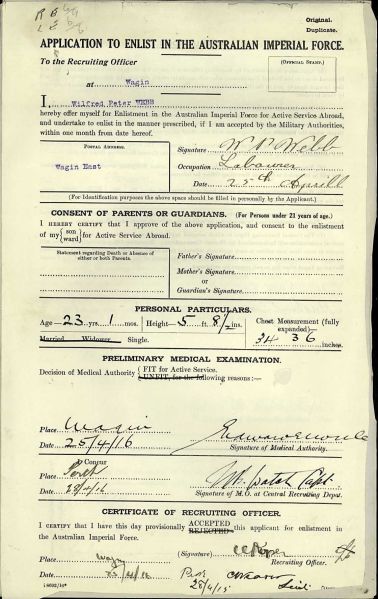 Original.
Duplicate.
APPLICATION TO ENLIST IN THE AUSTRALIAN IMPERIAL FORCE.
To the Recruiting Officer
(OFFICIAL STAMP.)
at Wagin
I, Wilfred Peter WEBB
hereby offer myself for Enlistment in the Australian Imperial Force for Active Service Abroad,
and undertake to enlist in the manner prescribed, if I am accepted by the Military Authorities,
within one month from date hereof.
POSTAL ADDRESS.
Wagin East
Signature W P Webb
Occupation Labourer
Date 25th Aprill
(For Identification purposes the above space should be filled in personally by the Applicant.)
CONSENT OF PARENTS OR GUARDIANS. (For Persons under 21 years of age.)
I HEREBY CERTIFY that I approve of the above application, and consent to the enlistment
of my {son
(ward} for Active Service Abroad.
Statement regarding Death or Absence of
either or both Parents.
Father's Signature
Mother's Signature
or
Guardian's Signature
PERSONAL PARTICULARS.
Age 23 yrs. 1 mos. Height 5 ft. 8½ ins.
Chest Measurement (fully
expanded)
34 36 inches.
Married Widower Single.
PRELIMINARY MEDICAL EXAMINATION.
Decision of Medical Authority { FIT for Active Service.
UNFIT, for the following reasons:—
Place Wagin
Date 25/4/16
Signature of Medical Authority.
I Concur
Place Perth
Date 28/4/16
Capt.
Signature of M.O. at Central Recruiting Depot.
CERTIFICATE OF RECRUITING OFFICER.
I CERTIFY that I have this day provisionally ACCEPTED
REJECTED this applicant for enlistment in the
Australian Imperial Force.
(Signature)
Recruiting Officer.
Place Wagin
Date 25/4/16
28/4/15
Lieut